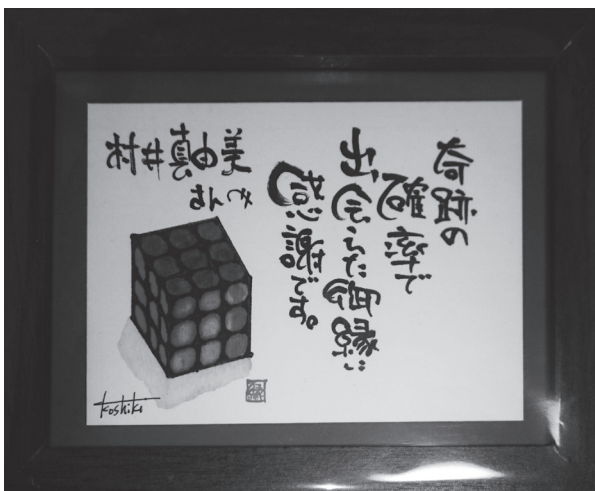 奇跡の
確率で
出会えた御縁に
感謝です。
村井真由美
さんへ
koshiko